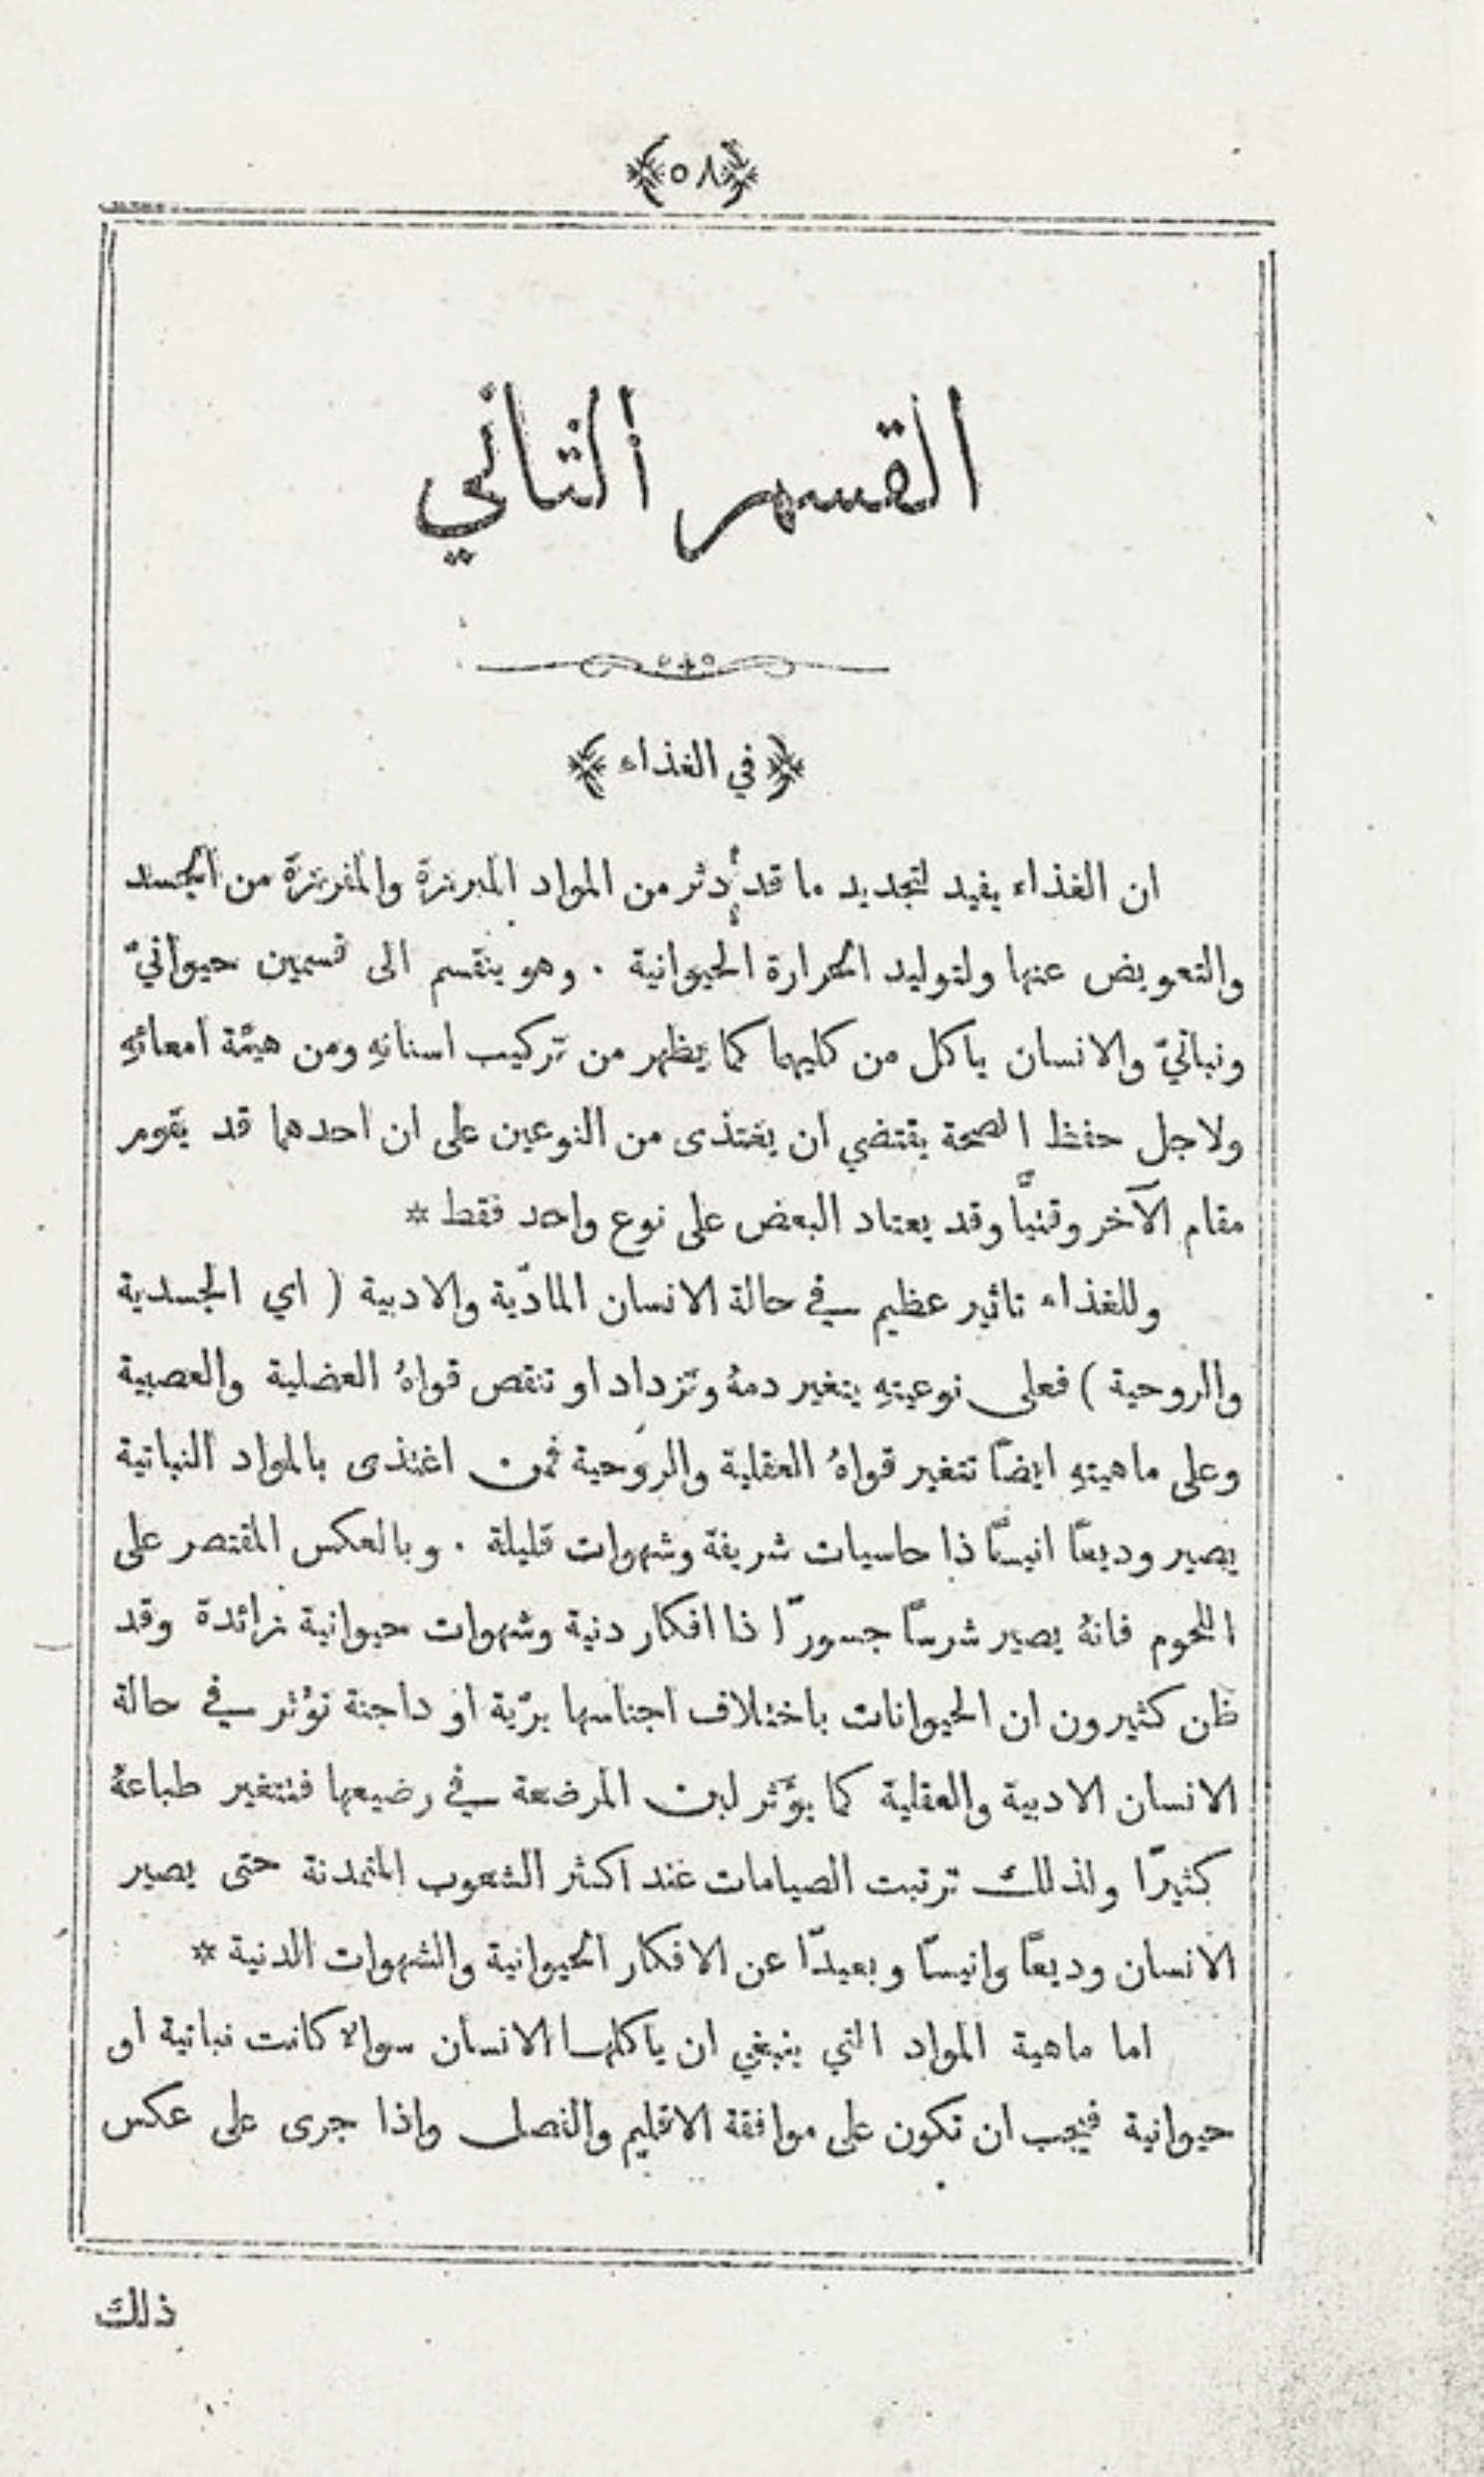 ﴿٥٨﴾
القسم الثاني
﴿في الغذاء﴾
ان الغذاء يفيد لتجديد ما قد دثر من المواد المبرزة والمفرزة من الجسد
والتعويض عنها ولتوليد الحرارة الحيوانية . وهو ينقسم الى قسمين حيوانيّ
ونباتيّ والانسان ياكل من كليهما كما يظهر من تركيب اسنانهِ ومن هيئة امعائهِ
ولاجل حفظ الصحة يقتضي ان يغتذى من النوعين على ان احدهما قد يقوم
مقام الآخر وقتيًّا وقد يعتاد البعض على نوع واحد فقط *
وللغذاء تاثير عظيم في حالة الانسان المادّية والادبية ( اي الجسدية
والروحية ) فعلى نوعيتهِ يتغير دمهُ وتزداد او تنقص قواهُ العضلية والعصبية
وعلى ماهيتهِ ايضًا تتغير قواهُ العقلية والروحية فمن اغتذى بالمواد النباتية
يصير وديعًا انيسًا ذا حاسيات شريفة وشهوات قليلة . وبالعكس المقتصر على
اللحوم فانهُ يصير شرسًا جسورًا ذا افكار دنية وشهوات حيوانية زائدة وقد
ظن كثيرون ان الحيوانات باختلاف اجناسها برّية او داجنة تؤثر في حالة
الانسان الادبية والعقلية كما يؤثر لبن المرضعة في رضيعها فتتغير طباعهُ
كثيرًا ولذلك ترتبت الصيامات عند اكثر الشعوب المتمدنة حتى يصير
الانسان وديعًا وانيسًا وبعيدًا عن الافكار الحيوانية والشهوات الدنية *
اما ماهية المواد التي ينبغي ان ياكلها الانسان سوالا كانت نباتية او
حيوانية فيجب ان تكون على موافقة الاقليم والفصل واذا جرى على عكس
ذلك